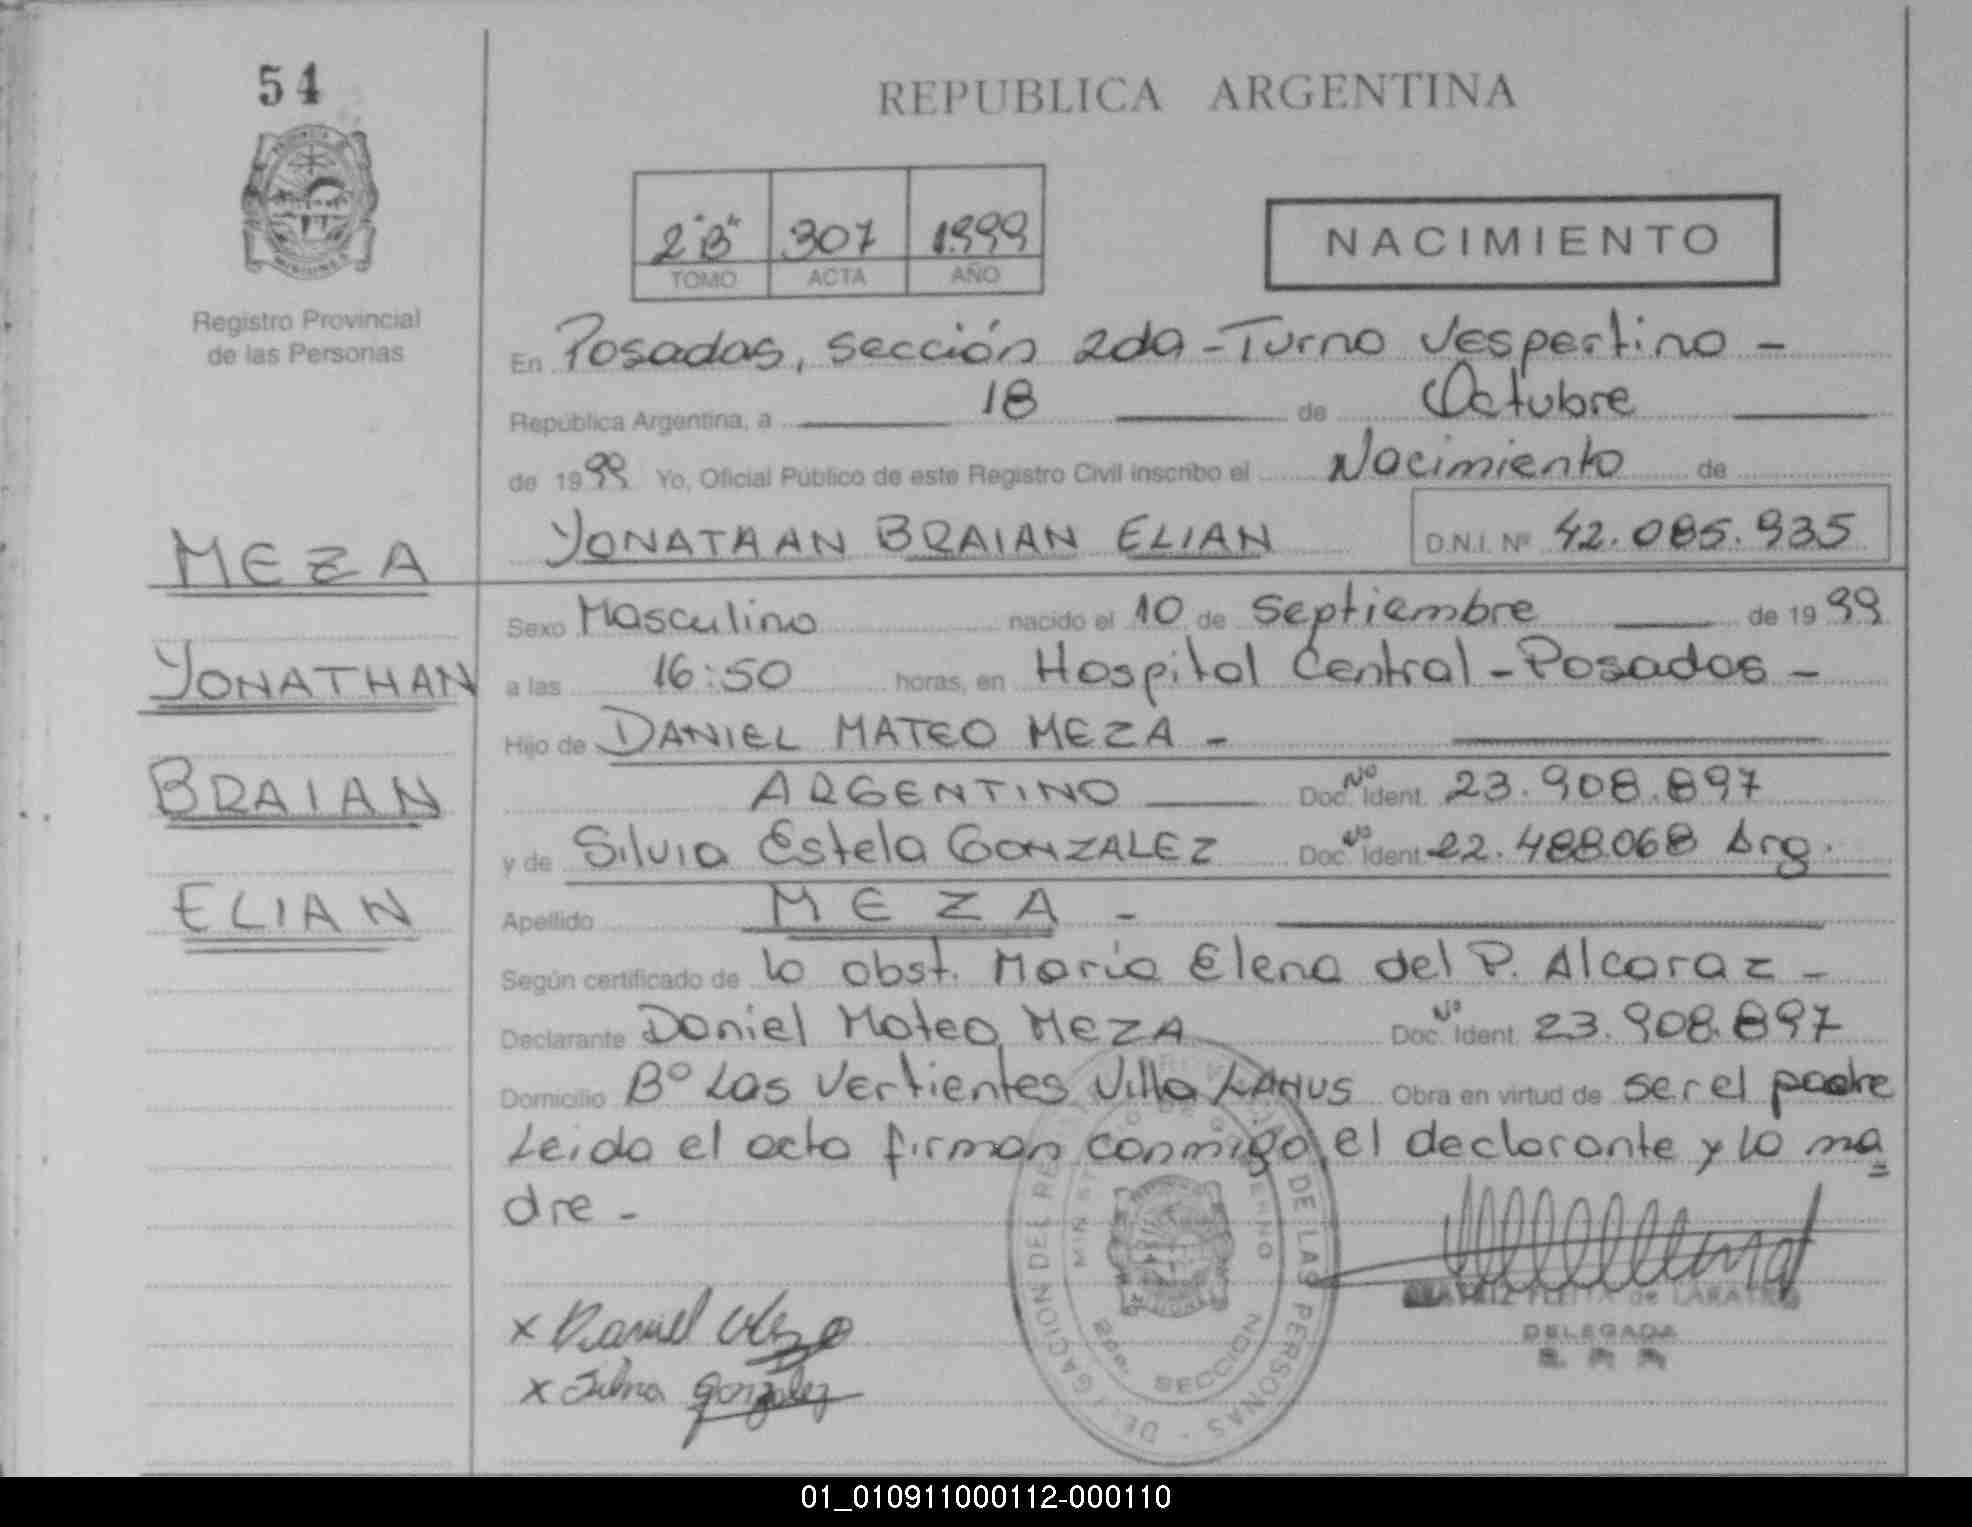 54
REPUBLICA ARGENTINA
2"B" 307 1999
TOMO ACTA AÑO
NACIMIENTO
Registro Provincial
de las Personas
En Posadas, sección 2da - Turno Vespertino -
República Argentina, a 18 de Octubre
de 1999 Yo, Oficial Público de este Registro Civil inscribo el Nacimiento de
YONATHAN BRAIAN ELIAN D.N.I. Nº 42.085.935
MEZA
YONATHAN
BRAIAN
ELIAN
Sexo Masculino nacido el 10 de Septiembre de 1999
a las 16:50 horas, en Hospital Central - Posadas -
Hijo de DANIEL MATEO MEZA -
ARGENTINO Doc. Nº Ident. 23.908.897
y de Silvia Estela GONZALEZ Doc. Nº Ident. 22.488.068 Arg.
Apellido MEZA -
Según certificado de la obst. Maria Elena del P. Alcaraz -
Declarante Daniel Mateo MEZA Doc. Nº Ident. 23.908.897
Domicilio Bº Las Vertientes Villa LANUS Obra en virtud de ser el padre
Leida el acta firman conmigo el declarante y la ma=
dre -
x Daniel Meza
x Silvia Gonzalez
DELEGACION DEL REGISTRO PROVINCIAL DE LAS PERSONAS
MINISTERIO DE GOBIERNO
2da. SECCION
BEATRIZ FLEITA de
DELEGADA